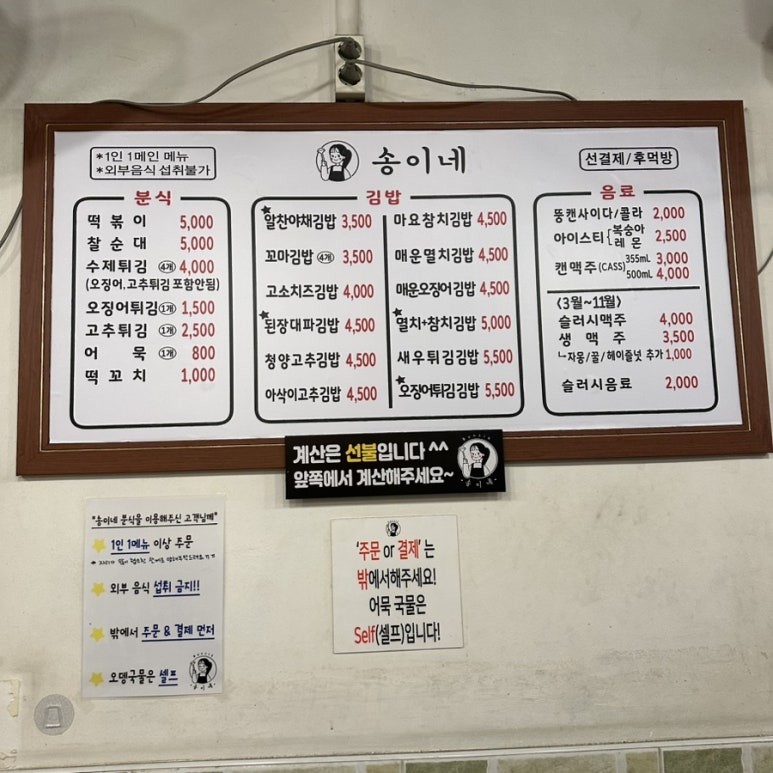 *1인 1메인 메뉴
*외부음식 섭취불가
송이네
선결제/후먹방
분식
떡볶이 5,000
찰순대 5,000
수제튀김 4개 4,000
(오징어,고추튀김 포함안됨)
오징어튀김 1개 1,500
고추튀김 1개 2,500
어묵 1개 800
떡꼬치 1,000
김밥
알찬야채김밥 3,500
꼬마김밥 4개 3,500
고소치즈김밥 4,000
된장대파김밥 4,500
청양고추김밥 4,500
아삭이고추김밥 4,500
마요참치김밥 4,500
매운멸치김밥 4,500
매운오징어김밥 4,500
멸치+참치김밥 5,000
새우튀김김밥 5,500
오징어튀김김밥 5,500
음료
뚱캔사이다/콜라 2,000
아이스티 복숭아 레몬 2,500
캔맥주(CASS) 355mL 3,000
500mL 4,000
〈3월~11월〉
슬러시맥주 4,000
생맥주 3,500
ㄴ자몽/꿀/헤이즐넛 추가 1,000
슬러시음료 2,000
계산은 선불입니다 ^^
앞쪽에서 계산해주세요~
송이네
"송이네 분식을 이용해주신 고객님께"
1인 1메뉴 이상 주문
외부 음식 섭취 금지!!
밖에서 주문 & 결제 먼저
오뎅국물은 셀프
송이네
'주문 or 결제' 는
밖에서해주세요!
어묵 국물은
Self(셀프)입니다!